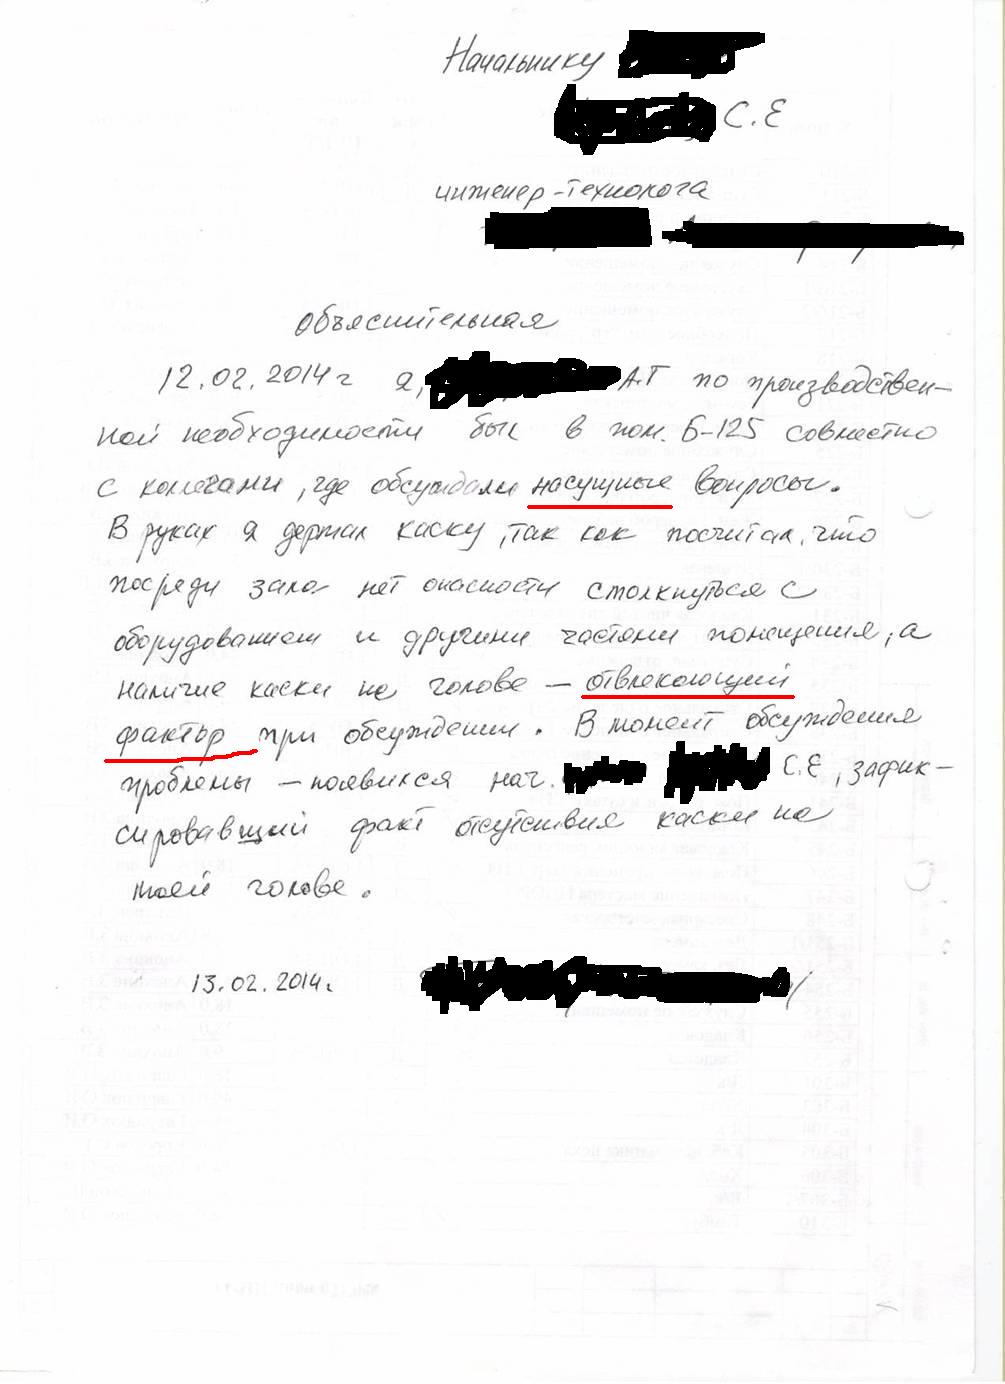 Начальнику
С.Е
инженер-технолога
объяснительная
12.02.2014г я, А.Г по производствен-
ной необходимости был в пом. Б-125 совместно
с коллегами, где обсуждали насущные вопросы.
В руках я держал каску, так как посчитал, что
посреди зала нет опасности столкнуться с
оборудованием и другими частями помещения, а
наличие каски на голове – отвлекающий
фактор при обсуждении. В момент обсуждения
проблемы – появился нач. С.Е, зафик-
сировавший факт отсутствия каски на
моей голове.
13.02.2014г.